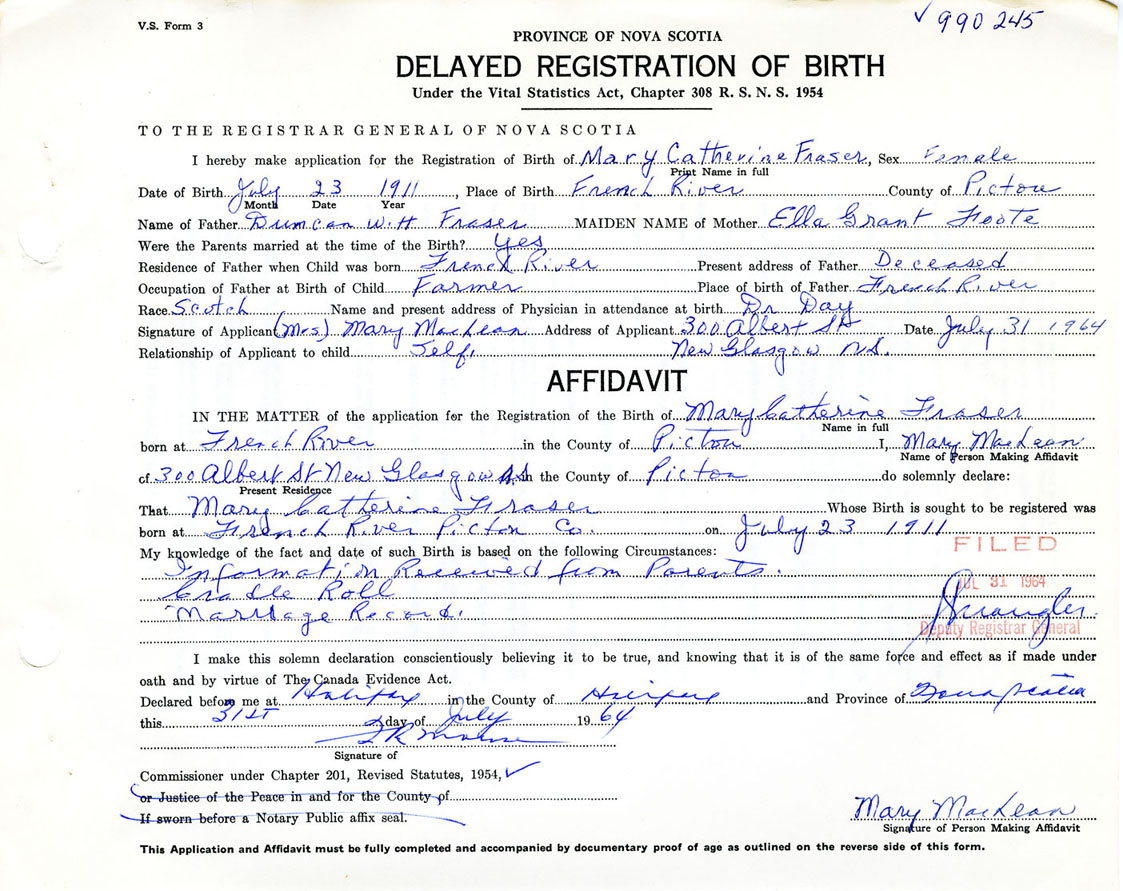 V.S. Form 3
✓ 990 245
PROVINCE OF NOVA SCOTIA
DELAYED REGISTRATION OF BIRTH
Under the Vital Statistics Act, Chapter 308 R. S. N. S. 1954
TO THE REGISTRAR GENERAL OF NOVA SCOTIA
I hereby make application for the Registration of Birth of Mary Catherine Fraser, Sex Female
Print Name in full
Date of Birth July 23 1911, Place of Birth French River County of Pictou
Month Date Year
Name of Father Duncan W.H Fraser MAIDEN NAME of Mother Ella Grant Foote
Were the Parents married at the time of the Birth? Yes
Residence of Father when Child was born French River Present address of Father Deceased
Occupation of Father at Birth of Child Farmer Place of birth of Father French River
Race Scotch Name and present address of Physician in attendance at birth Dr Day
Signature of Applicant (Mrs) Mary MacLean Address of Applicant 300 Albert St Date July 31 1964
Relationship of Applicant to child Self. New Glasgow N.S.
AFFIDAVIT
IN THE MATTER of the application for the Registration of the Birth of Mary Catherine Fraser
Name in full
born at French River in the County of Pictou I, Mary MacLean
Name of Person Making Affidavit
of 300 Albert St New Glasgow N.S. in the County of Pictou do solemnly declare:
Present Residence
That Mary Catherine Fraser Whose Birth is sought to be registered was
born at French River Pictou Co. on July 23 1911
My knowledge of the fact and date of such Birth is based on the following Circumstances:
FILED
Information Received from Parents.
Cradle Roll JUL 31 1964
Marriage Record.
Deputy Registrar General
I make this solemn declaration conscientiously believing it to be true, and knowing that it is of the same force and effect as if made under
oath and by virtue of The Canada Evidence Act.
Declared before me at Halifax in the County of Halifax and Province of Nova Scotia
this 31st day of July 1964
Signature of
Commissioner under Chapter 201, Revised Statutes, 1954, ✓
or Justice of the Peace in and for the County of
If sworn before a Notary Public affix seal.
Mary MacLean
Signature of Person Making Affidavit
This Application and Affidavit must be fully completed and accompanied by documentary proof of age as outlined on the reverse side of this form.